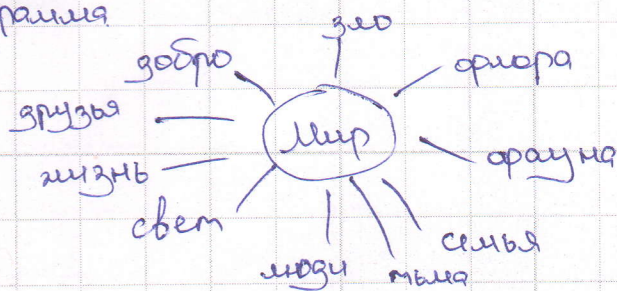 рамма
зло
добро
флора
друзья
Мир
фауна
жизнь
свет
семья
люди
тьма